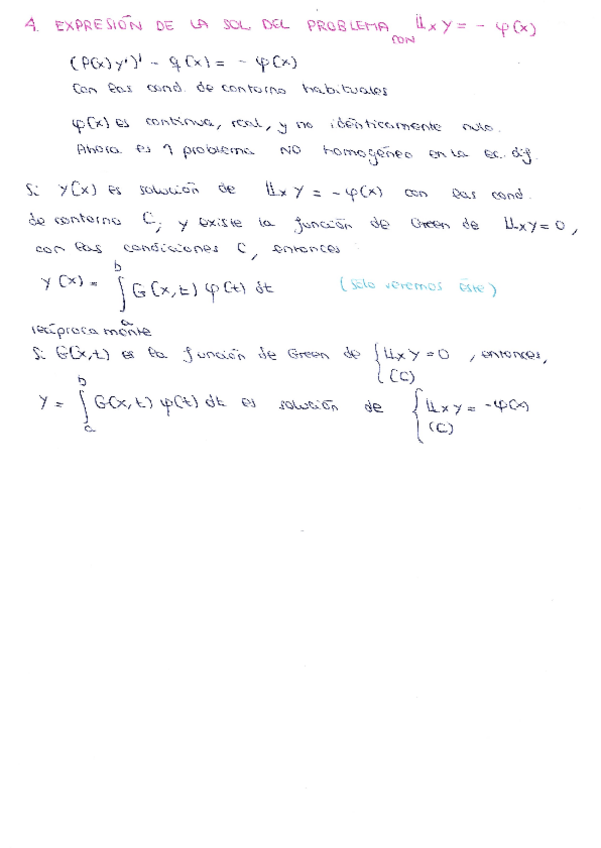 4. EXPRESIÓN DE LA SOL DEL PROBLEMA CON 𝕃x y = - φ(x)
(P(x) y')' - q(x) = - φ(x)
Con las cond. de contorno habituales
φ(x) es continua, real, y no idénticamente nulo.
Ahora es 1 problema NO homogéneo en la ec. dif.
Si y(x) es solución de 𝕃x y = -φ(x) con las cond.
de contorno C, y existe la función de Green de 𝕃x y = 0,
con las condiciones C, entonces
y(x) = ∫_a^b G(x,t) φ(t) dt (sólo veremos éste)
recíprocamente
Si G(x,t) es la función de Green de { 𝕃x y = 0 (C) , entonces,
y = ∫_a^b G(x,t) φ(t) dt es solución de { 𝕃x y = -φ(x) (C)